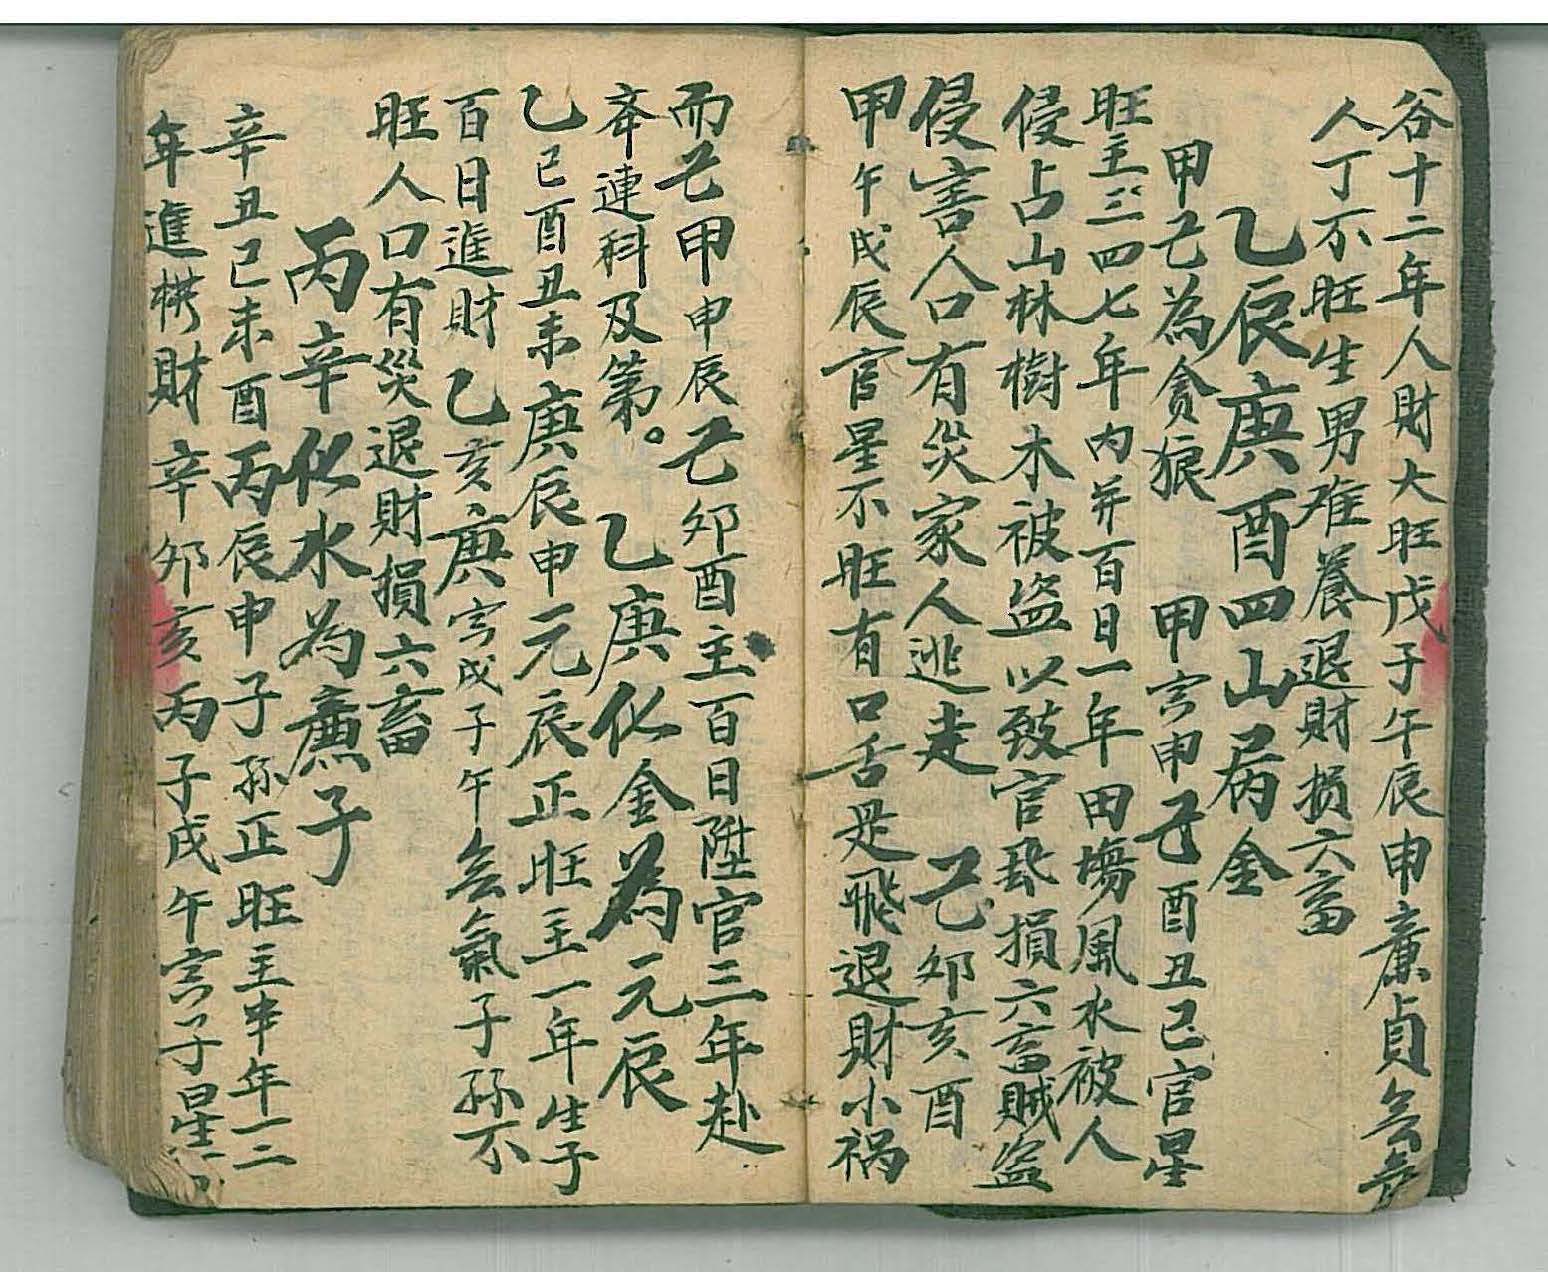 谷十二年人財大旺戊子午辰申亷貞𠫤
人丁不旺生男难養退財损六畜
乙辰庚酉四山屬金
甲己為貪狼 甲寅申己酉丑巳官星
旺主三四七年内并百日一年田塲風水被人
侵占山林樹木被盗以致官非損六畜賊盗
侵害人口有災家人逃走 己卯亥酉
甲午戌辰官星不旺有口舌是飛退財小禍
而己甲申辰己卯酉主百日陞官三年赴
夲連科及第。 乙庚化金為元辰
乙巳酉丑未庚辰申元辰正旺主一年生子
百日進財乙亥庚寅戌子午𠫤氣子孫不
旺人口有災退財損六畜
丙辛化水為亷子
辛丑巳未酉丙辰申子孫正旺主半年一二
年進橫財辛卯亥丙子戌午寅子星